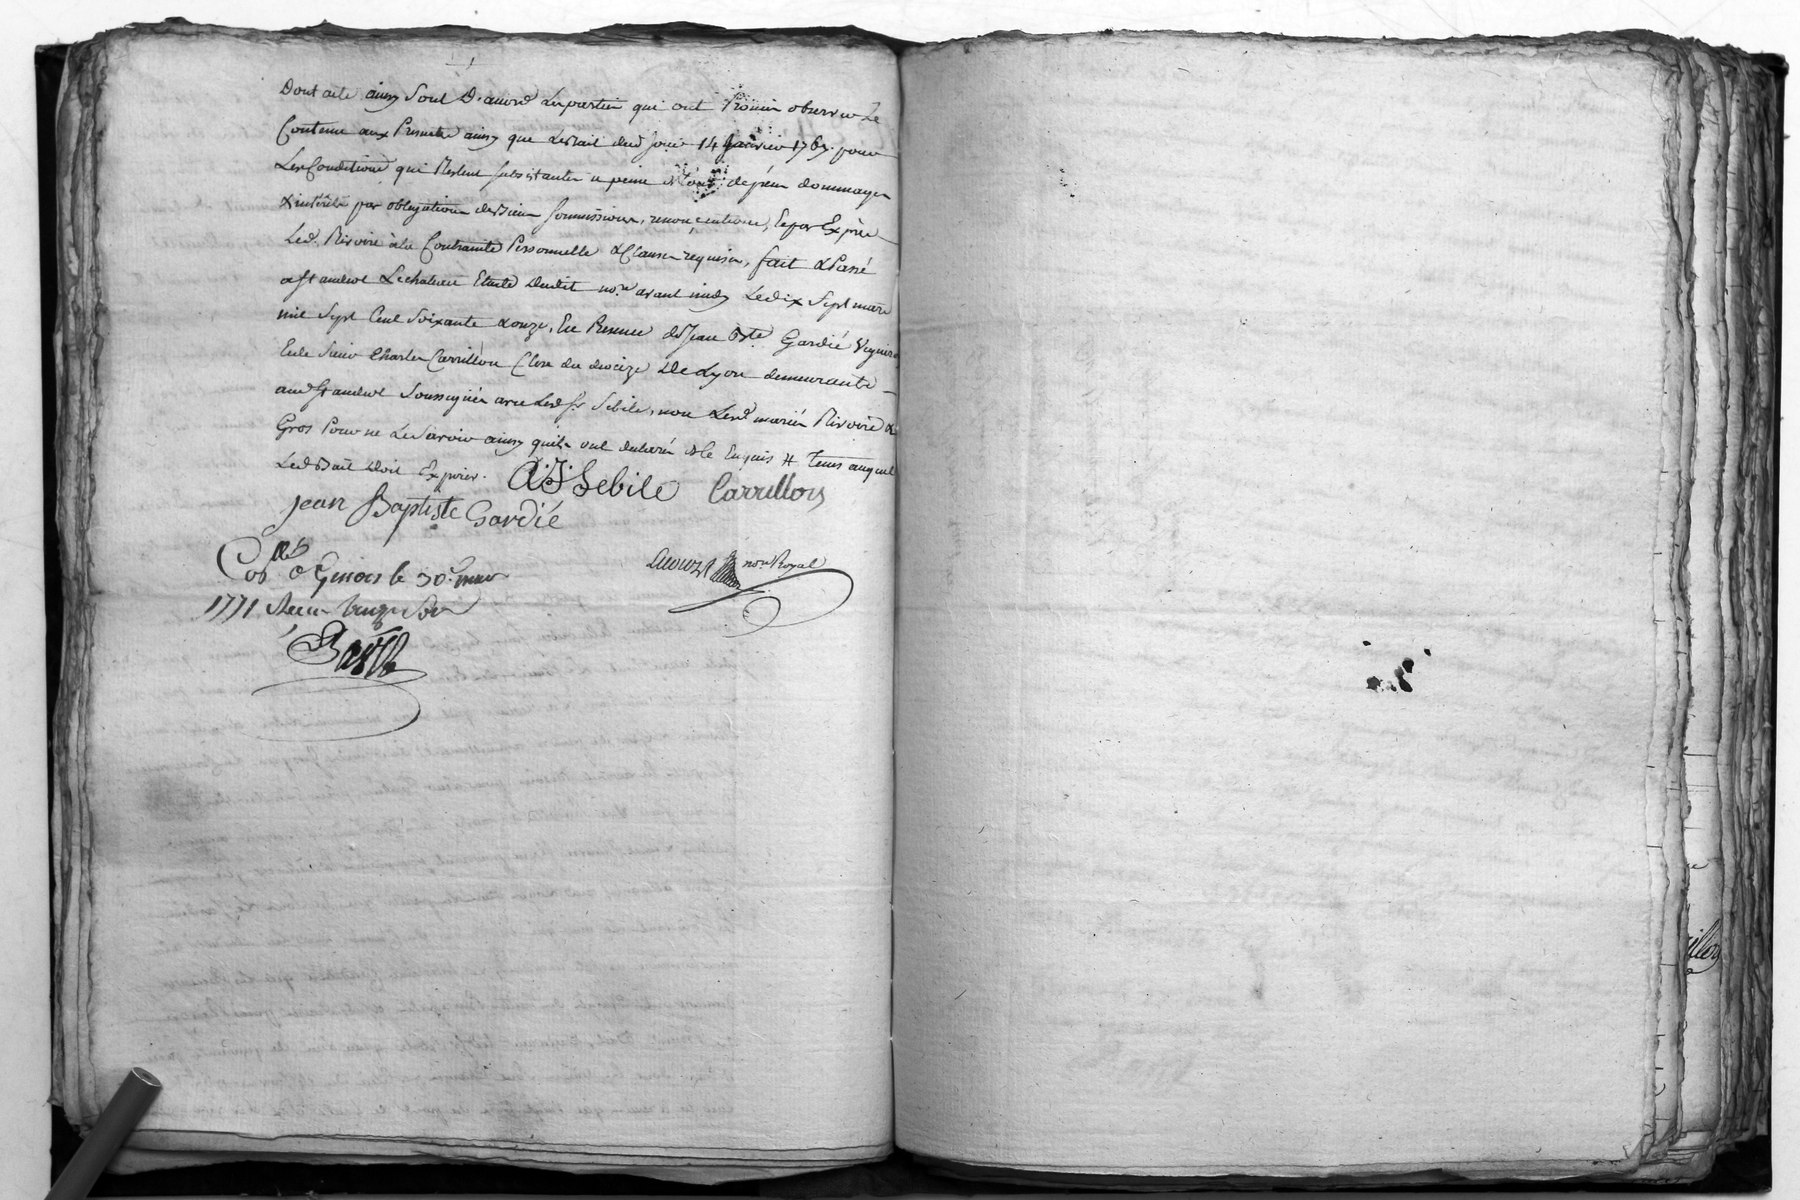 Dont acte ainsy sont d'accord les parties qui ont promis observer le
Contenu aux presentes ainsy que ledit bail dud jour 14 janvier 1767 pour
Les Conditions qui restent subsistantes a peine de tous depens dommages
& interêts par obligation de biens soumissions, renonciations, & par Exprès
Led. Rivoire à la Contrainte Personnelle & Clauses requises, fait & Passé
a St andeol Le chateau Etude dudit nore avant midy Le dix sept mars
mil sept Cent soixante & onze, En Presence de Jean Bte Gardié Vigneron
Et de Sieur Charles Carrillon Clerc du diocèze de Lyon demeurants
aud St andeol Soussignés avec Led. Sr Sebile, non Lesd. mariés Rivoire &
Gros Pour ne Le Savoir ainsy qu'ils ont declaré de ce Enquis # tems auquel
Led. Bail doit Expirer.
Sebile Carrillon
Jean Baptiste Gardié
nore Royal
Colé a Givors le 30 mars
1771 Recu